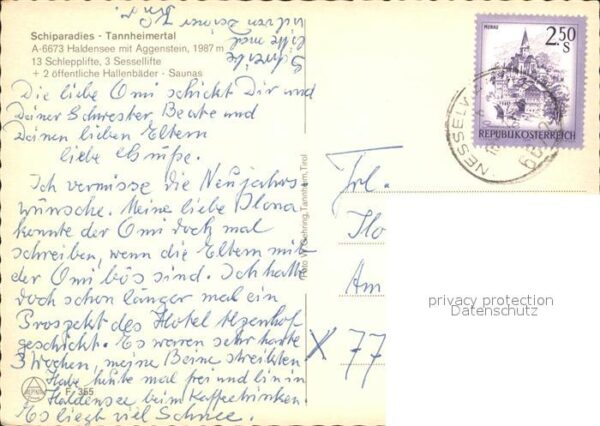 Schiparadies - Tannheimertal
A-6673 Haldensee mit Aggenstein, 1987 m
13 Schlepplifte, 3 Sessellifte
+ 2 öffentliche Hallenbäder - Saunas
Die liebe Omi schickt Dir und
Deiner Schwester, Beate und
Deinen lieben Eltern
liebe Grüße.
Ich vermisse die Neujahrs-
wünsche. Meine liebe Ilona
konnte der Omi doch mal
schreiben, wenn die Eltern mit
der Omi bös sind. Ich hatte
doch schon länger mal ein
Prospekt des Hotel Alpenhof
geschickt. Es waren sehr harte
3 Wochen, meine Beine streikten
Habe heute mal frei und bin in
Haldensee beim Kaffeetrinken.
Es liegt viel Schnee.
ALPINA
F. 355
Foto W. Gehring, Tannheim, Tirol
MURAU
2.50
S
REPUBLIK ÖSTERREICH
NESSELW
6672
Frl.
Ilo
Am
X 77
privacy protection
Datenschutz